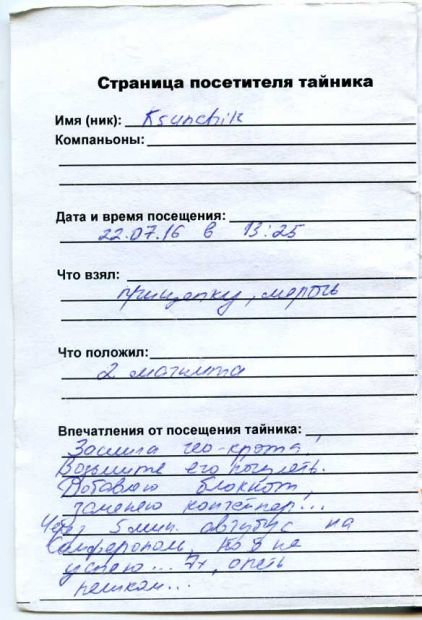 Страница посетителя тайника
Имя (ник): Ksunchik
Компаньоны:
Дата и время посещения:
22.07.16 в 13:25
Что взял:
прищепку, мелочь
Что положил:
2 магнита
Впечатления от посещения тайника:
гео-крота,
Возьмите его погулять.
Добавляю блокнот,
заменяю контейнер...
Через 5 мин. автобус на
Симферополь, но я не
успею... Эх, опять
пешком...